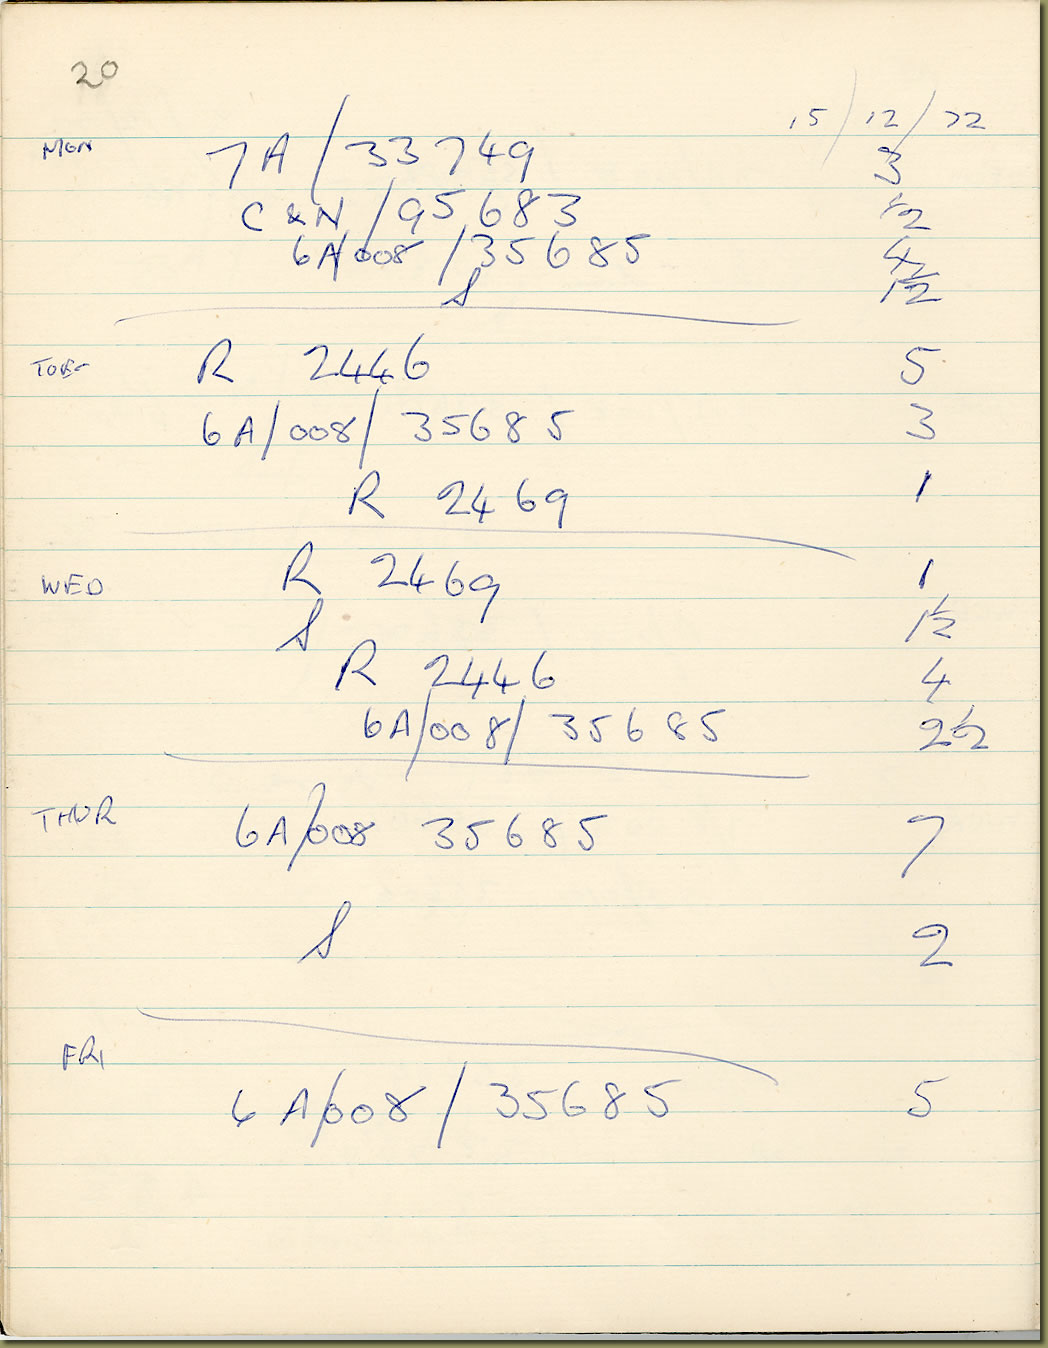 20
15/12/72
MON 7A/33749 3
C&N/95683 1/2
6A/008/35685 4
S 1 1/2
TUES R 2446 5
6A/008/35685 3
R 2469 1
WED R 2469 1
S 1 1/2
R 2446 4
6A/008/35685 2 1/2
THUR 6A/008 35685 7
S 2
FRI
6A/008/35685 5